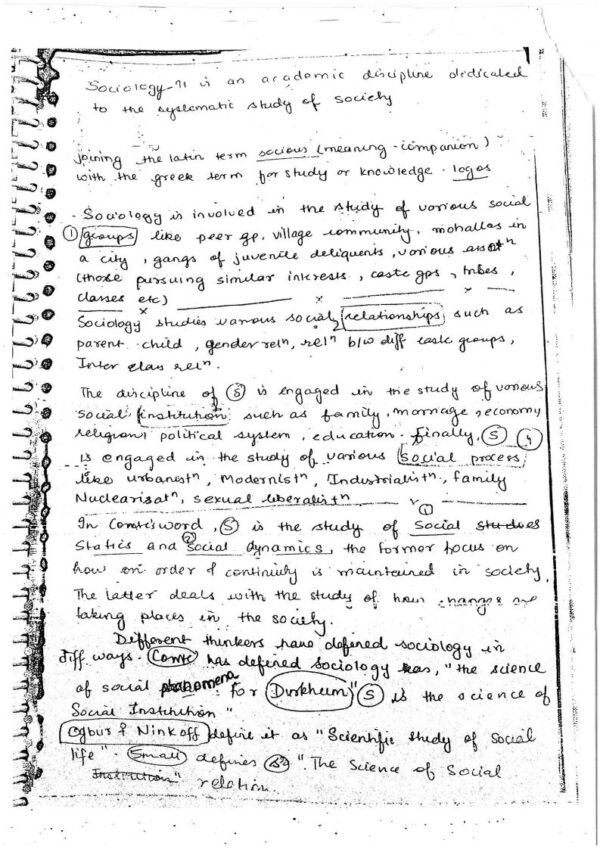 Sociology :- is an academic discipline dedicated
to the systematic study of society
joining the latin term socious (meaning - companion)
with the greek term for study or knowledge - logos
- Sociology is involved in the study of various social
① groups like peer gp, village community, mohallas in
a city, gangs of juvenile deliquents, various assotn
(those pursuing similar interests, caste gps, tribes,
classes etc)
Sociology studies various social relationships such as
parent child, gender reln, reln b/w diff caste groups,
Inter class reln.
The discipline of Ⓢ is engaged in the study of various
social institution such as family, marriage, economy
religion, political system, education. Finally, Ⓢ
is engaged in the study of various social process
like urbanistn, Modernistn, Industrialistn, family
Nuclearisatn, sexual liberalistn
In Comte's word, Ⓢ is the study of ① Social studies
Statics and ② Social dynamics, the former focus on
how order & continuity is maintained in society
The latter deals with the study of how changes are
taking places in the society.
Different thinkers have defined sociology in
diff ways. Comte has defined Sociology has, "the science
of social phenomena for Durkheim" Ⓢ is the science of
Social Institution"
Ogbur & Ninkoff define it as "Scientific study of Social
life". Small defines as "The Science of Social
Institution" relation.